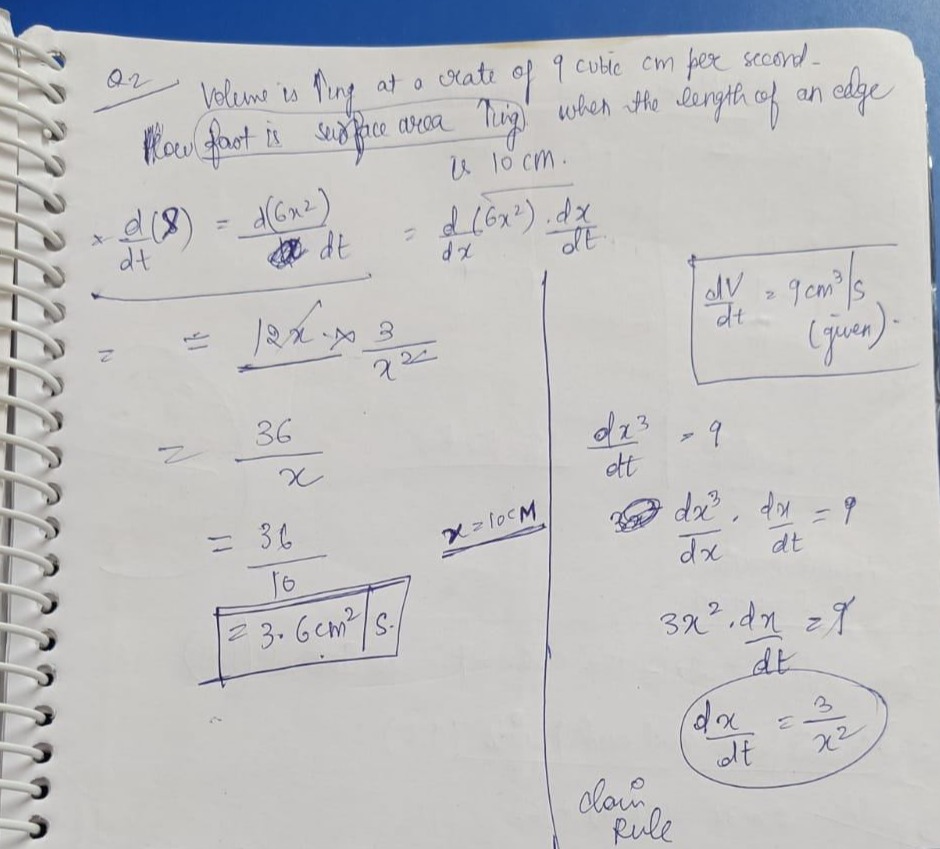 Q2 Volume is ↑ing at a rate of 9 cubic cm per second.
How fast is surface area ↑ing when the length of an edge
is 10 cm.
d/dt (S) = d(6x²)/dt = d/dx (6x²) . dx/dt
dV/dt = 9cm³/s
(given).
= = 12x × 3/x²
= 36/x
= 36/10
x = 10CM
= 3.6cm²/s.
dx³/dt = 9
dx³/dx . dx/dt = 9
3x² . dx/dt = 9
dx/dt = 3/x²
chain
Rule